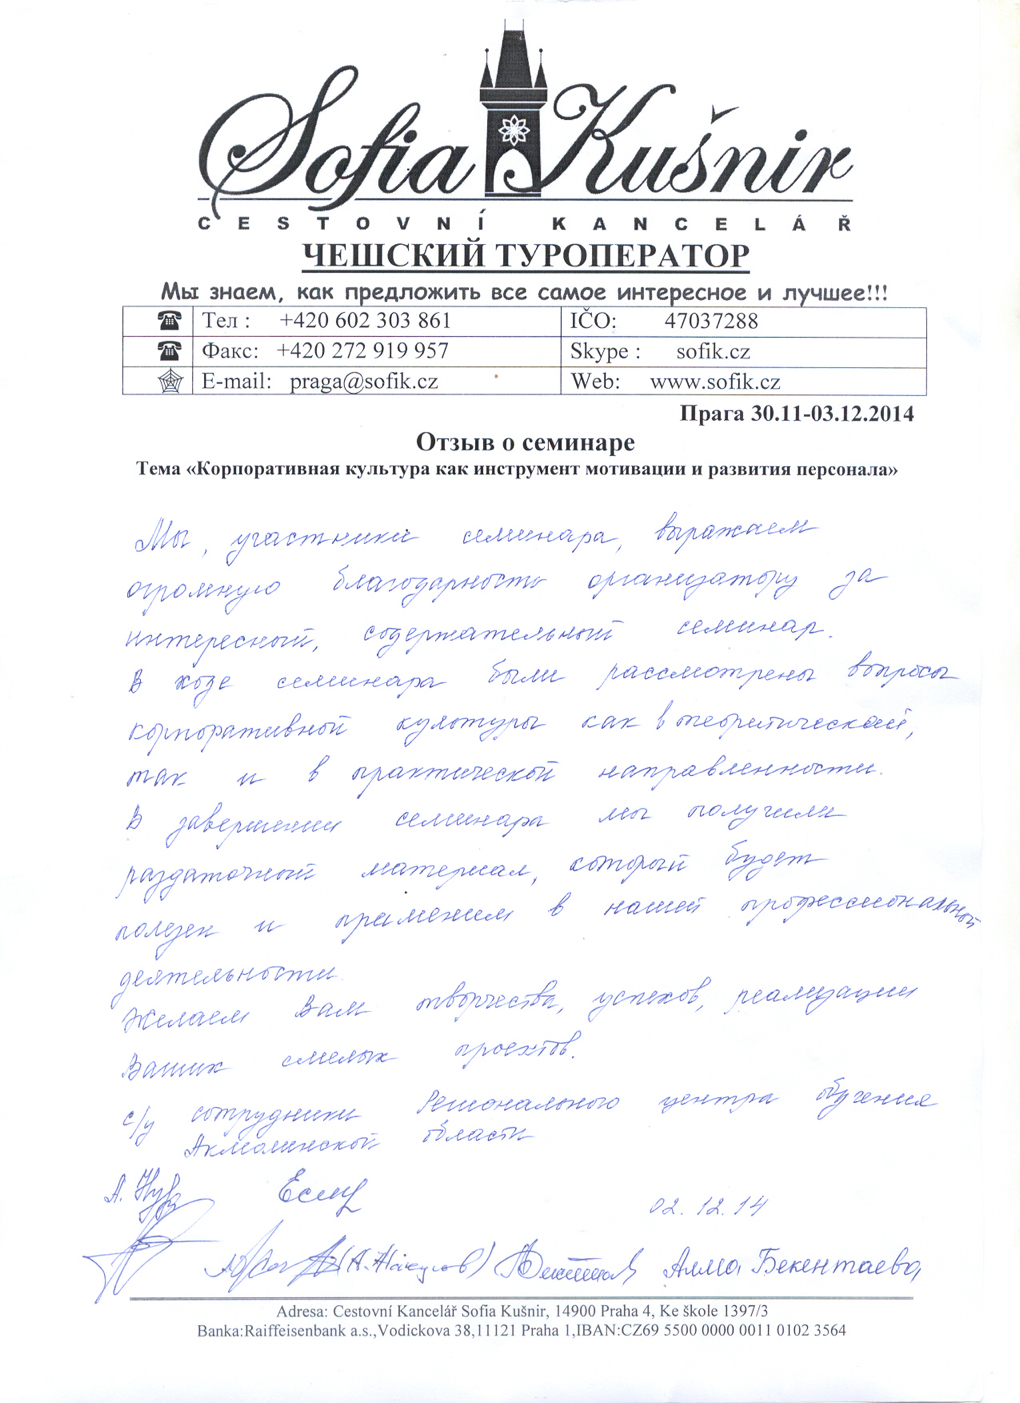 Sofia Kušnir
CESTOVNÍ KANCELÁŘ
ЧЕШСКИЙ ТУРОПЕРАТОР
Мы знаем, как предложить все самое интересное и лучшее!!!
Тел : +420 602 303 861 IČO: 47037288
Факс: +420 272 919 957 Skype : sofik.cz
E-mail: praga@sofik.cz Web: www.sofik.cz
Прага 30.11-03.12.2014
Отзыв о семинаре
Тема «Корпоративная культура как инструмент мотивации и развития персонала»
Мы, участники семинара, выражаем
огромную благодарность организатору за
интересный, содержательный семинар.
В ходе семинара были рассмотрены вопросы
корпоративной культуры как в теоритической,
так и в практической направленности.
В завершении семинара мы получили
раздаточный материал, который будет
полезен и применим в нашей профессиональной
деятельности.
Желаем Вам творчества, успехов, реализации
Ваших смелых проектов.
с/у сотрудники Регионального центра обучения
Акмолинской области
02.12.14
Алма Бекентаева
Adresa: Cestovní Kancelář Sofia Kušnir, 14900 Praha 4, Ke škole 1397/3
Banka:Raiffeisenbank a.s.,Vodickova 38,11121 Praha 1,IBAN:CZ69 5500 0000 0011 0102 3564